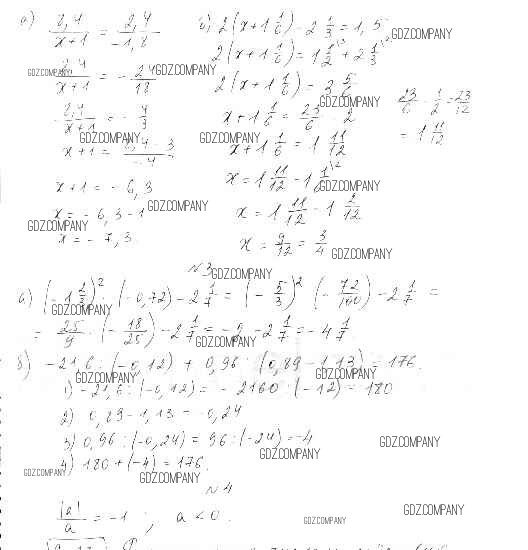 а) 8,4/x+1 = 2,4/-1,8
8,4/x+1 = -24/18
8,4/x+1 = -4/3
x+1 = 8,4·3/-4
x+1 = -6,3
x = -6,3-1
x = -7,3.
б) 2(x+1 1/6)-2 1/3=1,5
2(x+1 1/6)=1 1/2+2 1/3
2(x+1 1/6)=3 5/6
x+1 1/6=23/6 : 2
23/6 · 1/2=23/12
=1 11/12
x+1 1/6=1 11/12
x=1 11/12-1 1/6
x=1 11/12-1 2/12
x=9/12=3/4
N3
а) (-1 2/3)² · (-0,72)-2 1/7=(-5/3)² · (-72/100)-2 1/7=
=25/9 · (-18/25)-2 1/7=-2-2 1/7=-4 1/7
б) -21,6:(-0,12)+0,96:(0,89-1,13)=176.
1) -21,6:(-0,12)=-2160:(-12)=180
2) 0,89-1,13=-0,24
3) 0,96:(-0,24)=96:(-24)=-4
4) 180+(-4)=176.
N4
|a|/a=-1; a<0.
GDZ.COMPANY